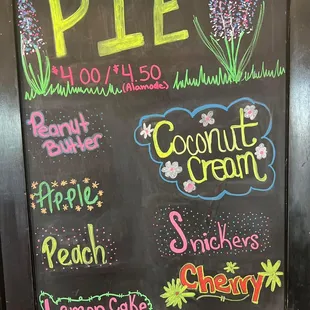 PIE
$4.00/$4.50
(Alamode)
Peanut
Butter
Coconut
Cream
Apple
Peach
Snickers
Cherry
Lemon Cake